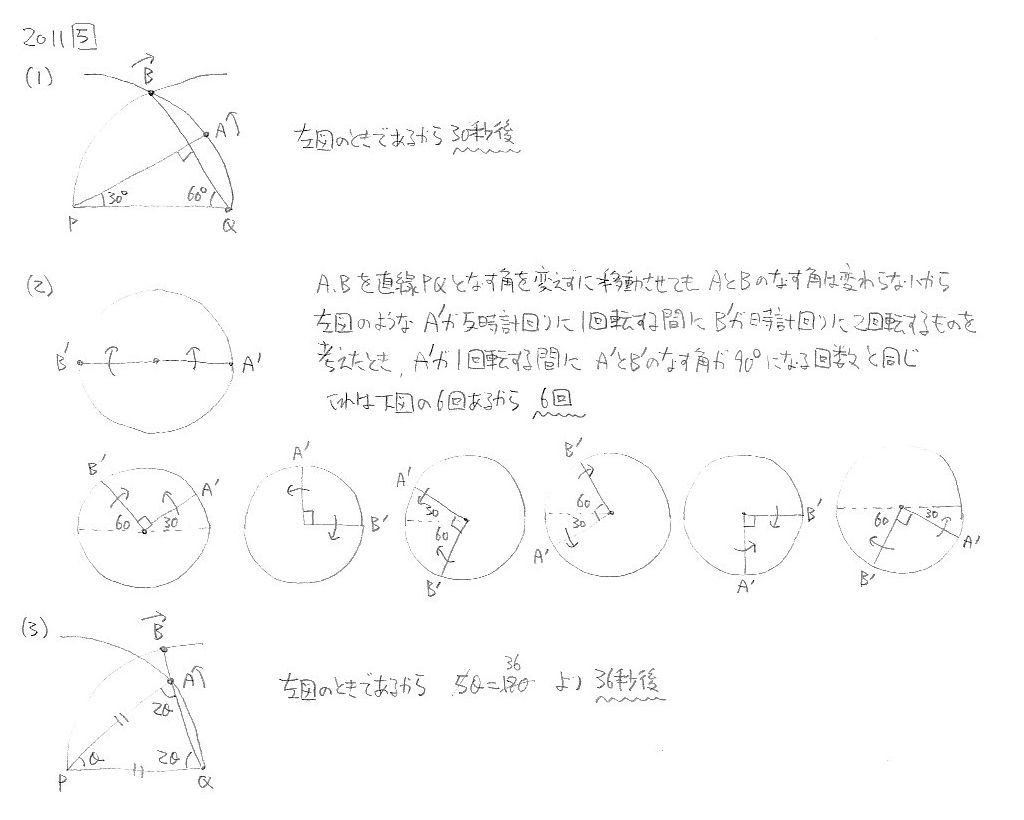 2011 5
(1)
B
A
左図のときであるから 30秒後
30° 60°
P Q
(2)
A.Bを直線PQとなす角を変えずに移動させても AとBのなす角は変わらないから
左図のような A'が反時計回りに1回転する間に B'が時計回りに2回転するものを
B' A'
考えたとき, A'が1回転する間に A'とB'のなす角が90°になる回数と同じ
これは下図の6回あるから 6回
B' A' 60 30
A' B'
A' 30 60 B'
B' 60 30 A'
B' A'
60 30 A' B'
(3)
B
A
左図のときであるから 5θ=180 36 より 36秒後
2θ
θ 2θ
P Q